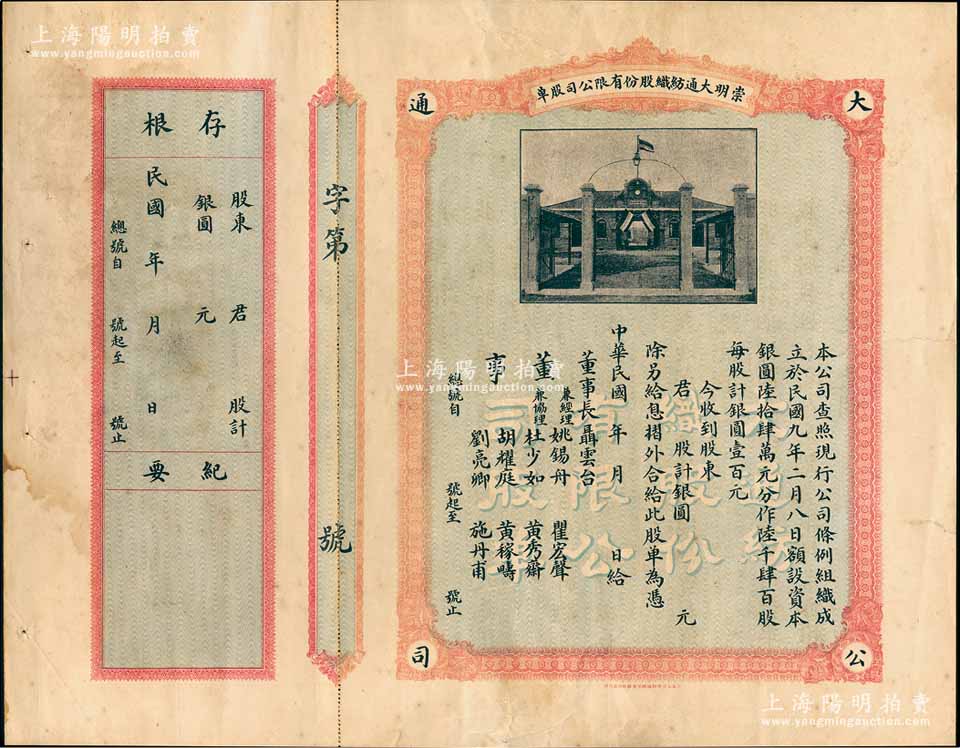 上海陽明拍賣
www.yangmingauction.com
崇明大通紡織股份有限公司股單
大
通
公
司
本公司查照現行公司條例組織成
立於民國九年二月八日額設資本
銀圓陸拾肆萬元分作陸千肆百股
每股計銀圓壹百元
今收到股東
君 股計銀圓 元
除另給息摺外合給此股單為憑
中華民國 年 月 日給
董事長聶雲台
董事
兼經理姚錫舟 瞿宏聲
兼協理杜少如 黃秀齋
胡耀庭 黃稼疇
劉亮卿 施丹甫
總號自 號起至 號止
字第 號
存根
股東 君 股計
銀圓 元
民國 年 月 日
總號自 號起至 號止
紀要
上海陽明拍賣
www.yangmingauction.com
上海陽明拍賣
www.yangmingauction.com